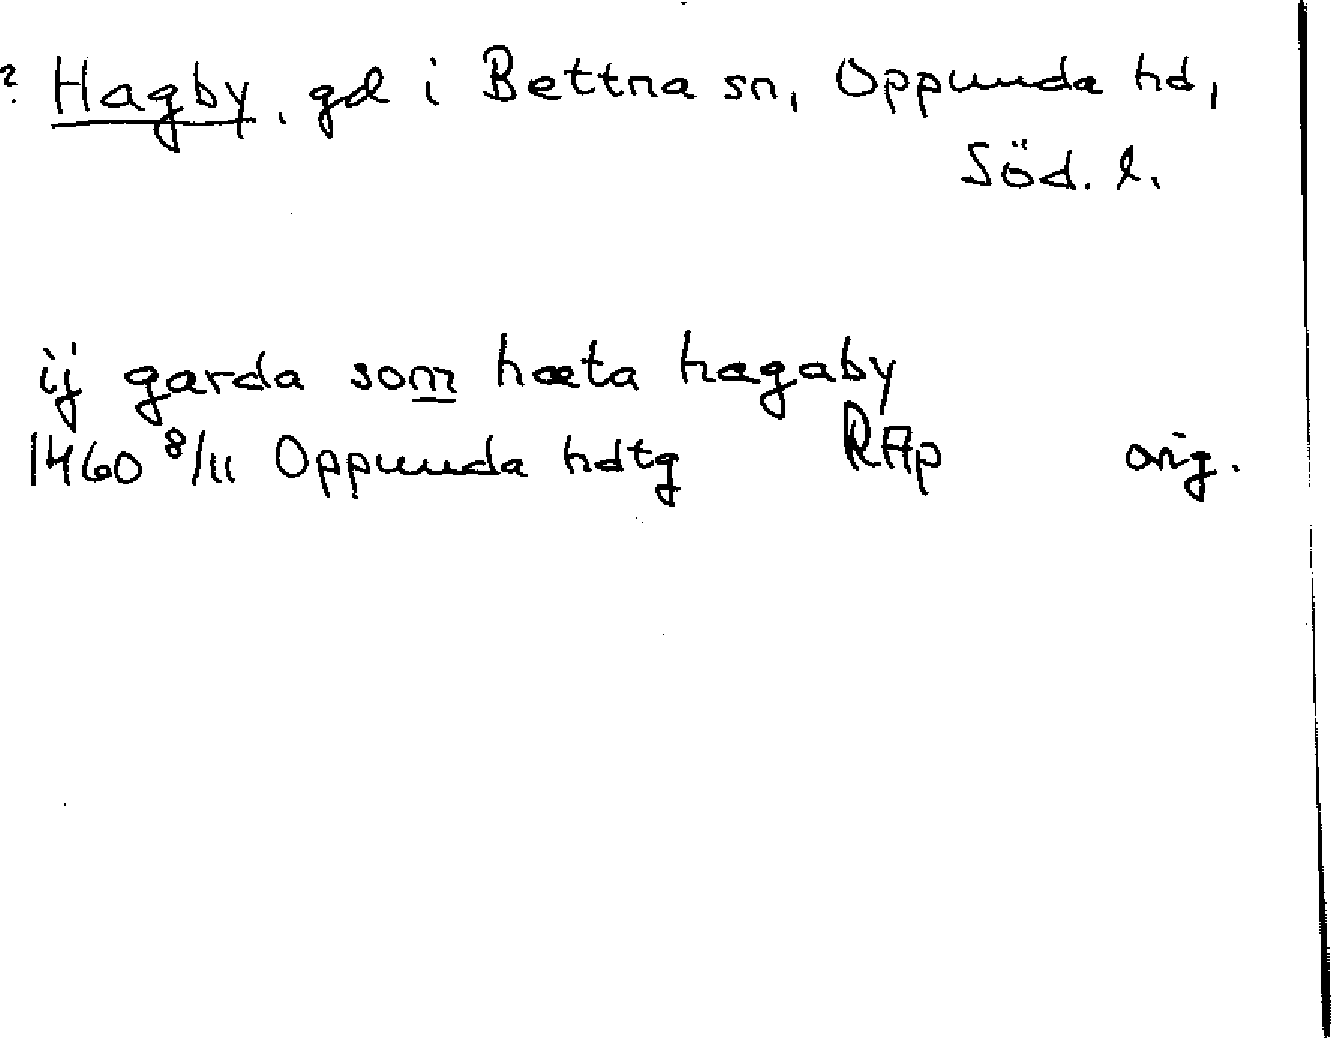 ? Hagby, gd i Bettna sn, Oppunda hd,
Söd. l.
ij garda som hæta hagaby
1460 8/11 Oppunda hdtg RAp orig.